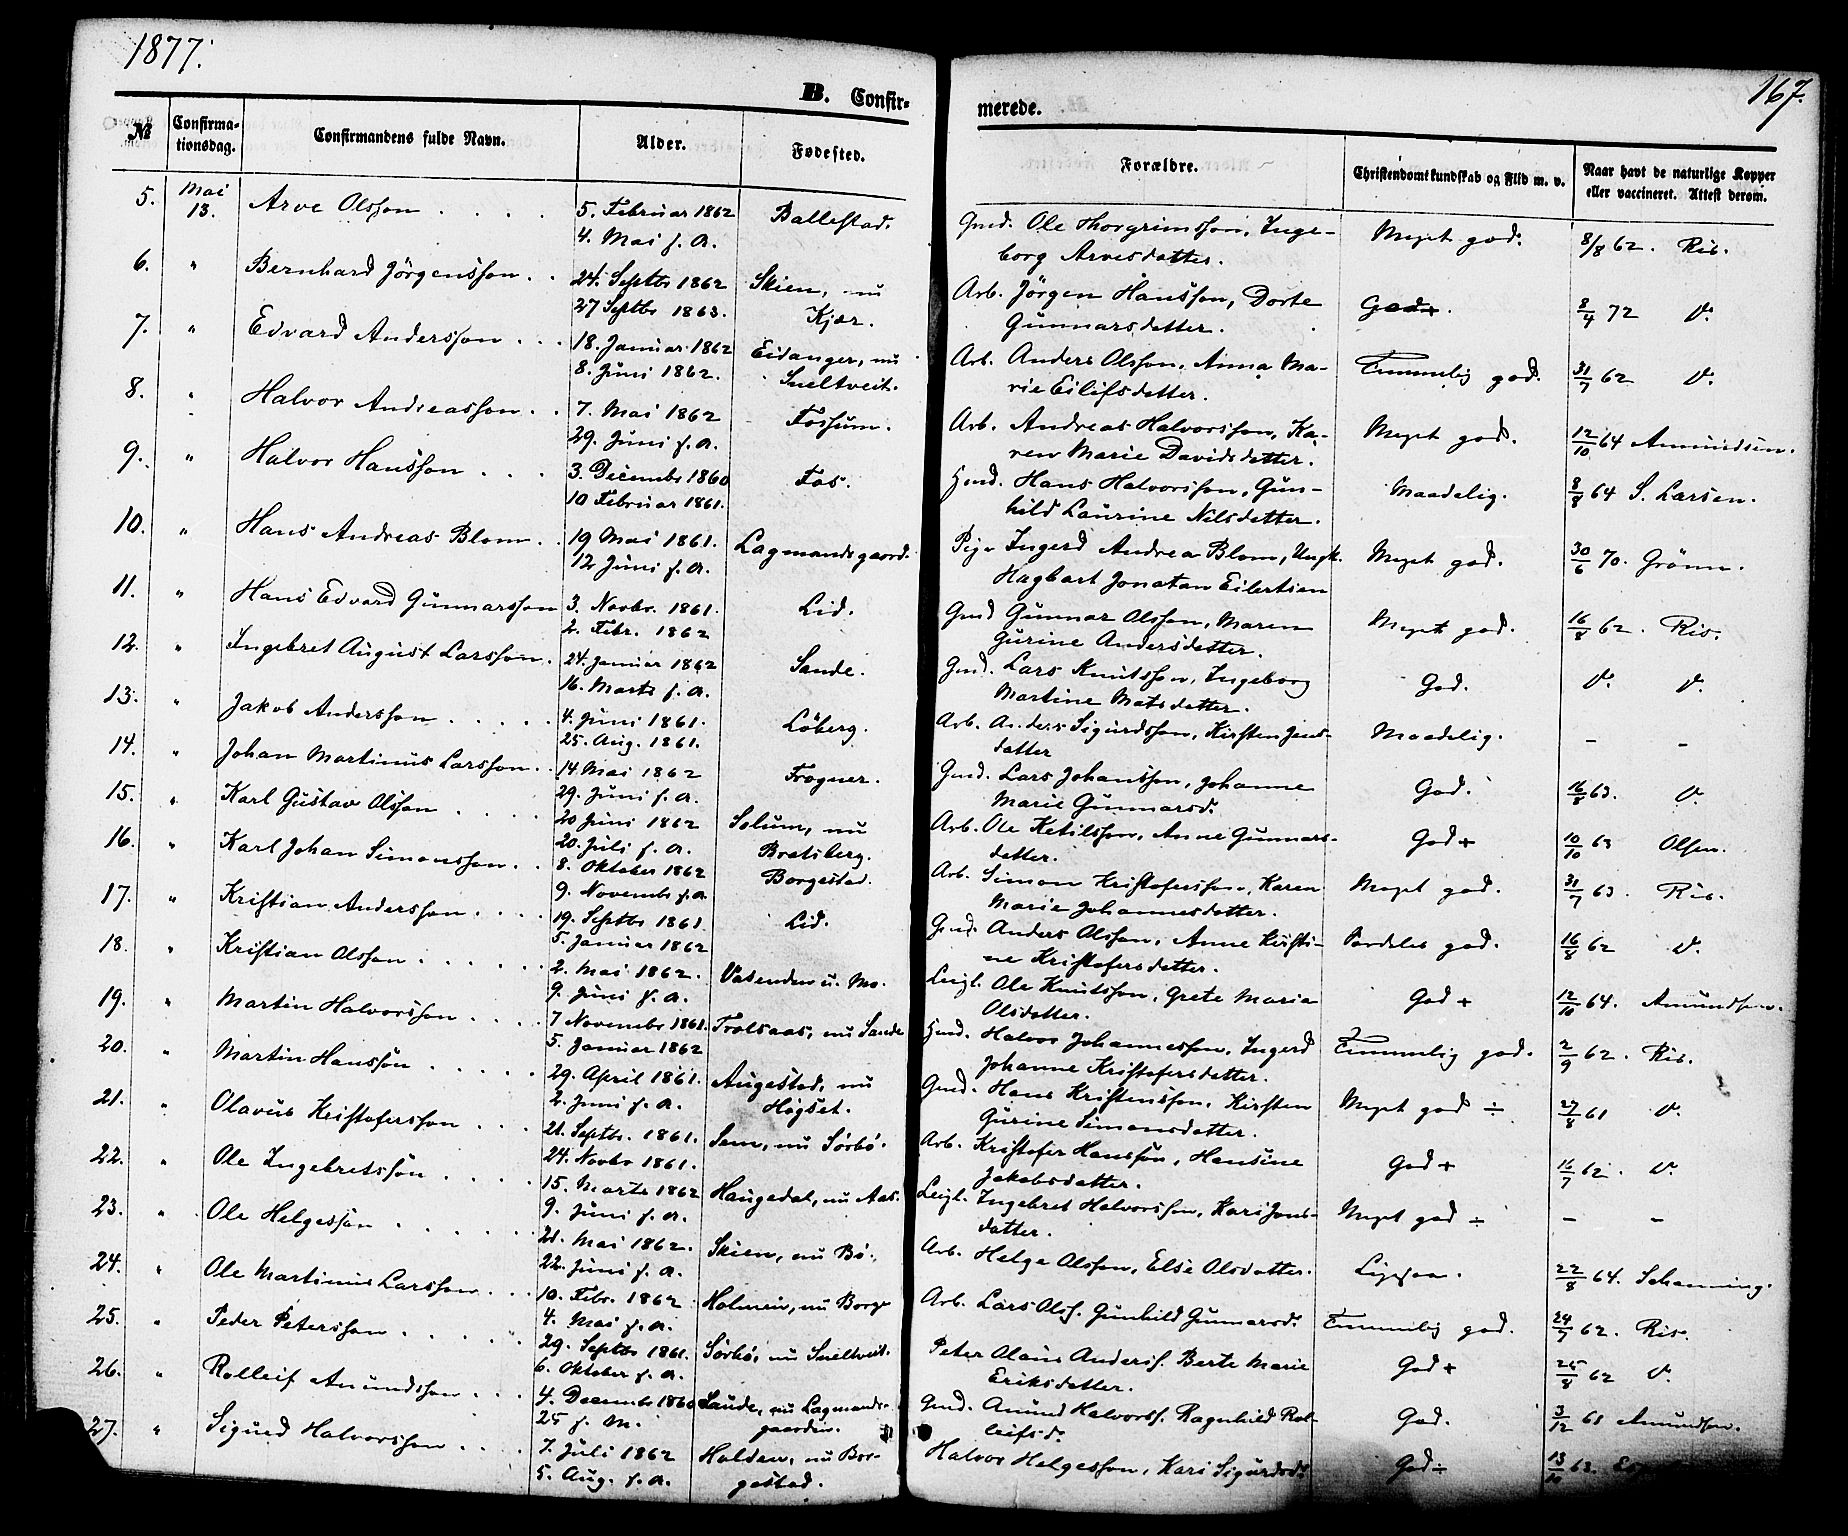 1877.
167.
B. Confir-
merede.
№
Confirma-
tionsdag.
Confirmandens fulde Navn.
Alder.
Fødested.
Forældre.
Christendomskundskab og Flid m. v.
Naar havt de naturlige Kopper
eller vaccineret. Attest derom.
5. Mai 13. Arve Olsson . . . . 5. Februar 1862 Ballestad. Gmd. Ole Thorgrimsson, Inge- Meget god. 8/8 62. Ris.
4. Mai s. A. borg Arvesdatter.
6. " Bernhard Jörgensson . . 24. Septbr 1862 Skien, nu Arb. Jörgen Hansson, Dorte God+. 8/4 72 V.
27 Septbr 1863. Kjær. Gunnarsdatter.
7. " Edvard Andersson . . . 18. Januar 1862 Eidanger, nu Arb. Anders Olsson, Anna Ma- Temmelig god. 31/7 62 V.
8. Juni 1862. Sneltveit. rie Eilifsdatter.
8. " Halvor Andreasson . . 7. Mai 1862 Fossum. Arb. Andreas Halvorsson, Ka- Meget god. 12/10 64 Amundsen.
29. Juni s. A. ren Marie Davidsdatter.
9. " Halvor Hansson . . . 3. Decembr 1860 Fos. Hmd. Hans Halvorsson, Gun- Maadelig. 8/8 64 S. Larsen.
10 Februar 1861. hild Laurine Nilsdatter.
10. " Hans Andreas Blom . . 19 Mai 1861. Lagmandsgaard. Pige Ingerd Andrea Blom, Ungk. Meget god. 30/6 70. Grönn.
12 Juni s. A. Hagbart Jonatan Eilertsen
11. " Hans Edvard Gunnarsson 3. Novbr. 1861. Lid. Gmd Gunnar Olsson, Maren Meget god. 16/8 62. Ris.
2. Febr. 1862 Gurine Andersdatter.
12. " Ingebret August Larsson. 24. Januar 1862 Sande. Gmd. Lars Knutsson, Ingeborg God. V. V.
16. Marts s. A. Martine Matsdatter.
13. " Jakob Andersson . . . . . 4. Juni 1861. Löberg. Arb. Anders Sigurdsson, Kirsten Jens- Maadelig. - -
25. Aug. 1861. datter
14. " Johan Martinus Larsson . . 14. Mai 1862 Frogner. Gmd. Lars Johansson, Johanne God. 16/8 63. V.
29. Juni s. A. Marie Gunnarsd.
15. " Karl Gustav Olsson . . . . 20 Juni 1862 Solum, nu Arb. Ole Ketilsson, Anne Gunnars- God + 10/10 63 Olsen.
20. Juli s. A. Bratsberg. datter.
16. " Karl Johan Simonsson . . 8. Oktober 1862 Borgestad. Arb. Simon Kristofersson, Karen Meget god. 31/7 63. Ris.
9. Novembr s. A. Marie Johannesdatter.
17. " Kristian Andersson . . . . 19. Septbr 1861 Lid. Gmd. Anders Olsson, Anne Kirsti- Særdeles god. 16/8 62 V.
5. Januar 1862 ne Kristofersdatter.
18. " Kristian Olsson . . . . . . 2. Mai 1862. Vasenden u. Mo. Leigl. Ole Knutsson, Grete Maria God + 12/10 64. Amundsen.
9. Juni s. A. Olsdatter.
19. " Martin Halvorsson . . . . 7 Novembr 1861. Trolsaas, nu Sande Hmd. Halvor Johannesson, Ingerd Temmelig god. 2/9 62. Ris.
5. Januar 1862 Johanne Kristofersdatter.
20. " Martin Hansson . . . . . 29. April 1861. Augestad, nu Gmd. Hans Kristensson, Kirsten Meget god ÷ 27/8 61 V.
2. Juni s. A. Högset. Gurine Simonsdatter.
21. " Olavus Kristofersson . . . 21. Septbr. 1861. Sem, nu Sörbö. Arb. Kristofer Hansson, Hansine God + 16/7 62. V.
24. Novbr 1861. Jakobsdatter.
22. " Ole Ingebretsson . . . . 15. Marts 1862 Haugedal, nu Aas. Leigl. Ingebret Halvorsson, Kari Jons- Meget god ÷ - -
9. Juni s. A. datter.
23. " Ole Helgesson . . . . . . 21. Mai 1862. Skien, nu Bö. Arb. Helge Olsson, Else Olsdatter. Ligesaa. 22/8 64. Schanning.
22. Juni s. A.
24. " Ole Martinius Larsson . . . 10. Febr. 1862 Holmen, nu Borge Arb. Lars Olss. Gunhild Gunnarsd. Temmelig god. 24/7 62. Ris.
4. Mai s. A.
25. " Peder Petersson . . . . . 29. Septbr 1861. Sörbö, nu Sneltveit. Peter Olaus Anderss. Berte Marie God + 25/8 62 V.
6. Oktober s. A. Eriksdatter.
26. " Rolleif Amundsson . . . 4. Decembr 1860 Sande, nu Lagmands- Gmd. Amund Halvorss. Ragnhild Rol- God. 3/12 61 Amundsen.
25 s. M. gaarden. leifsd.
27. " Sigurd Halvorsson . . . . 7. Juli 1862 Holden, nu Bor- Halvor Helgesson, Kari Sigurdsd. God ÷ 13/10 63.
5. Aug. s. A. gestad.